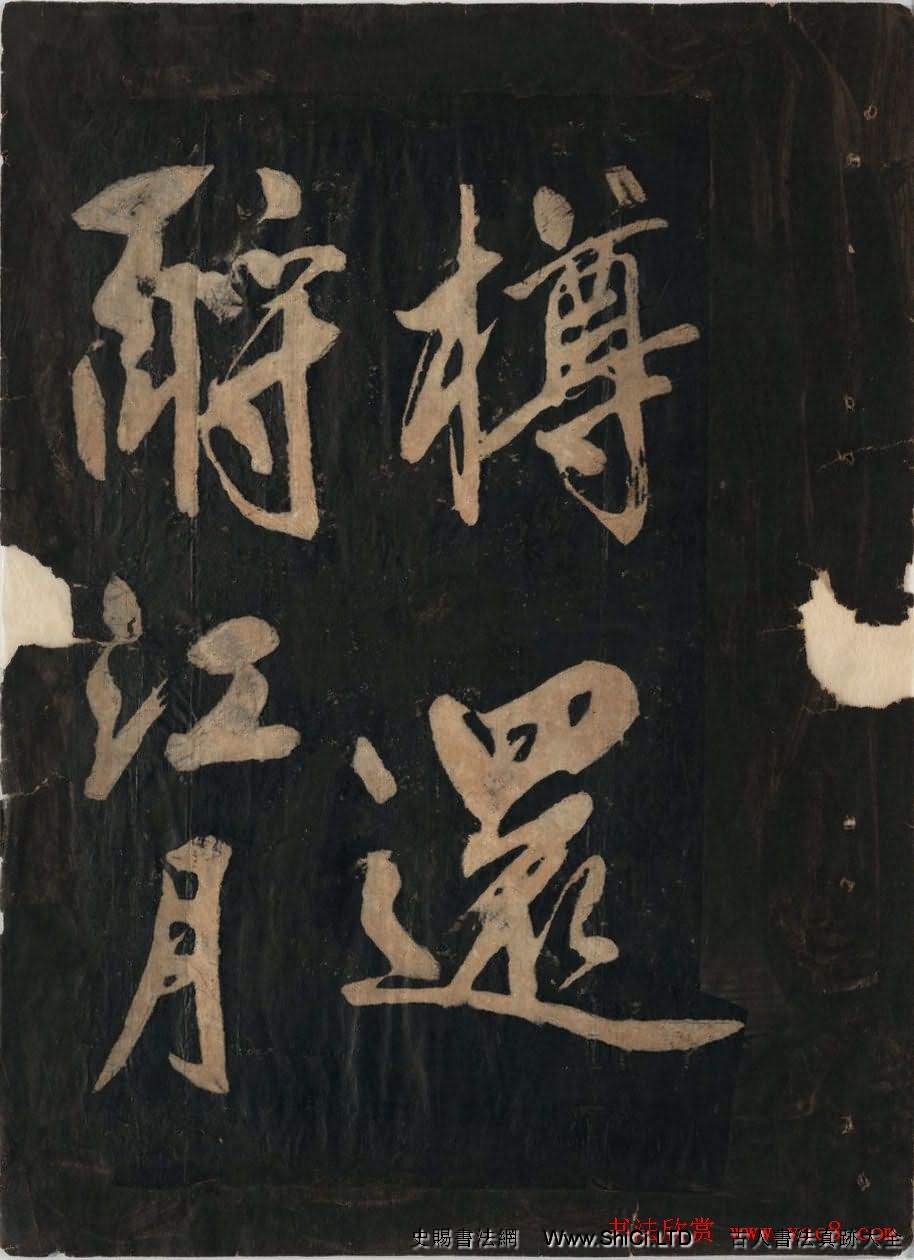 樽還
酹江月
史賜書法網 Www.ShiCi.LTD 古人書法真跡大全
书法欣赏 www.yac8.com